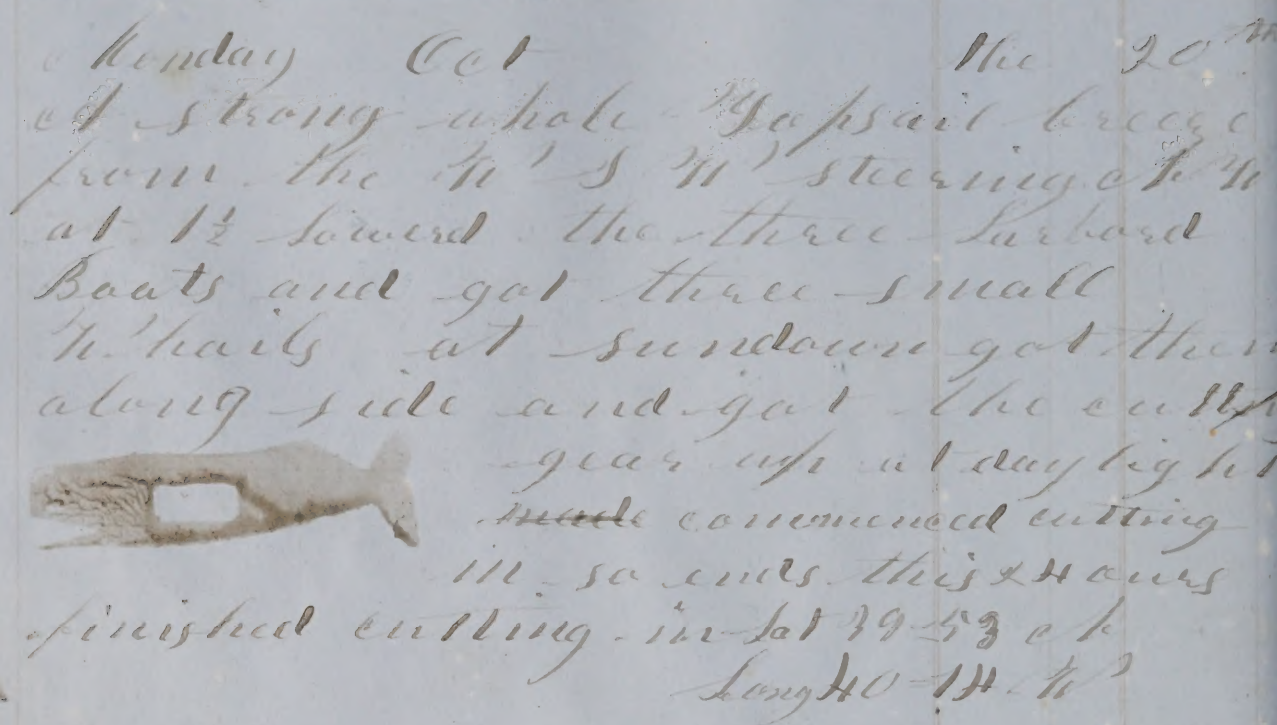 Monday Oct the 20th
A strong whole Topsail breeze
from the W S W steering N W
at 1½ lowered the three Larbord
Boats and got three small
Whails at sundown got them
along side and got the cutting
gear up at daylight
made commenced cutting
in so ends this 24 ours
finished cutting in Lat 39-53 N
Long 40-14 W